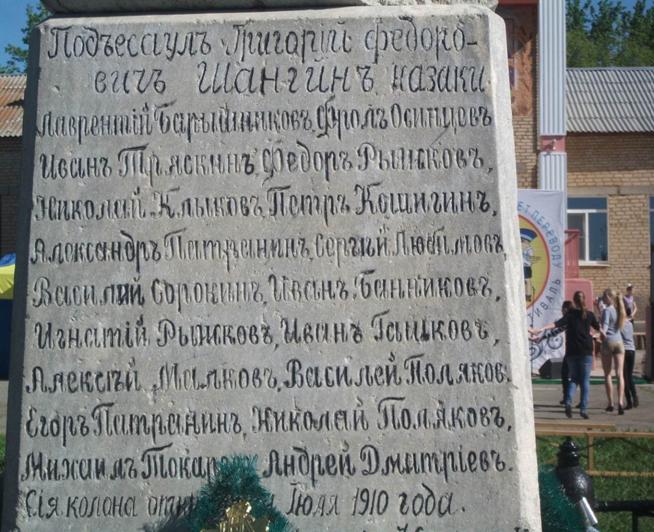 Подъесаулъ Григорій Федоро-
вичъ Шангинъ, казаки
Лаврентій Барышниковъ, Фролъ Осинцовъ
Иванъ Тряскинъ, Федоръ Рыжковъ,
Николай Клыковъ, Петръ Кошигинъ,
Александръ Патранинъ, Сергій Любимовъ,
Василій Сорокинъ, Иванъ Банниковъ,
Игнатій Рыжковъ, Иванъ Гашковъ,
Алексѣй Малковъ, Василей Поляков
Егоръ Патранинъ, Николай Поляковъ,
Михаилъ Андрей Дмитріевъ.
Сія колона Іюля 1910 года.
ЕТ ПЕРЕВОДУ